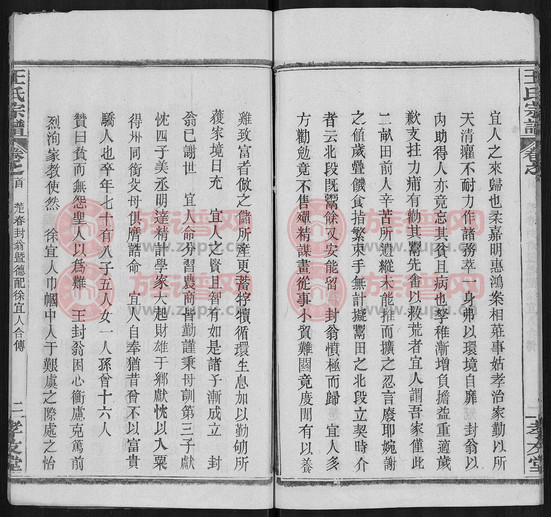 王氏宗譜
卷之
二
孝友堂
宜人之來歸也柔嘉明惠鴻案相莊事姑孝治家勤以所
天清癯不耐力作諸務萃一身弗以環境自靡 封翁以
內助得人亦竟忘其貧且病也孥稚漸增負擔益重適歲
歉支拄力痡有勸其鬻先畬以救荒者宜人謂吾家僅此
二畝田前人辛苦所遺縱未能推而擴之忍言廢耶婉謝
之値歲暨餱食掯繁束手無計擬鬻田之北段立契時介
者云北段旣鬻餘又安能留 封翁憤極而歸 宜人多
方勸勉竟不售殫精謀畫從事小貿難關竟度閒有以養
雞致富者倣之儲所產更蓄牸犢循環生息加以勤劬所
獲家境日充 宜人之賢且智有如是諸子漸成立 封
翁已謝世 宜人命分習農商皆勤謹秉母訓第三子獻
忱四子美丞明達精計學家大起財雄于鄉獻忱以入粟
得州同銜父母俱膺誥命 宜人自奉猶昔昚不以富貴
驕人也卒年七十有八子五人女一人孫曾十六人
贊曰貧而無怨聖人以爲難 王封翁困心衡慮克篤前
烈洵家教使然 徐宜人巾幗中人于艱虞之際處之怡
王氏宗譜
卷之首
范春封翁暨德配徐宜人合傳
二
孝友堂
族谱网
www.zupu.cn